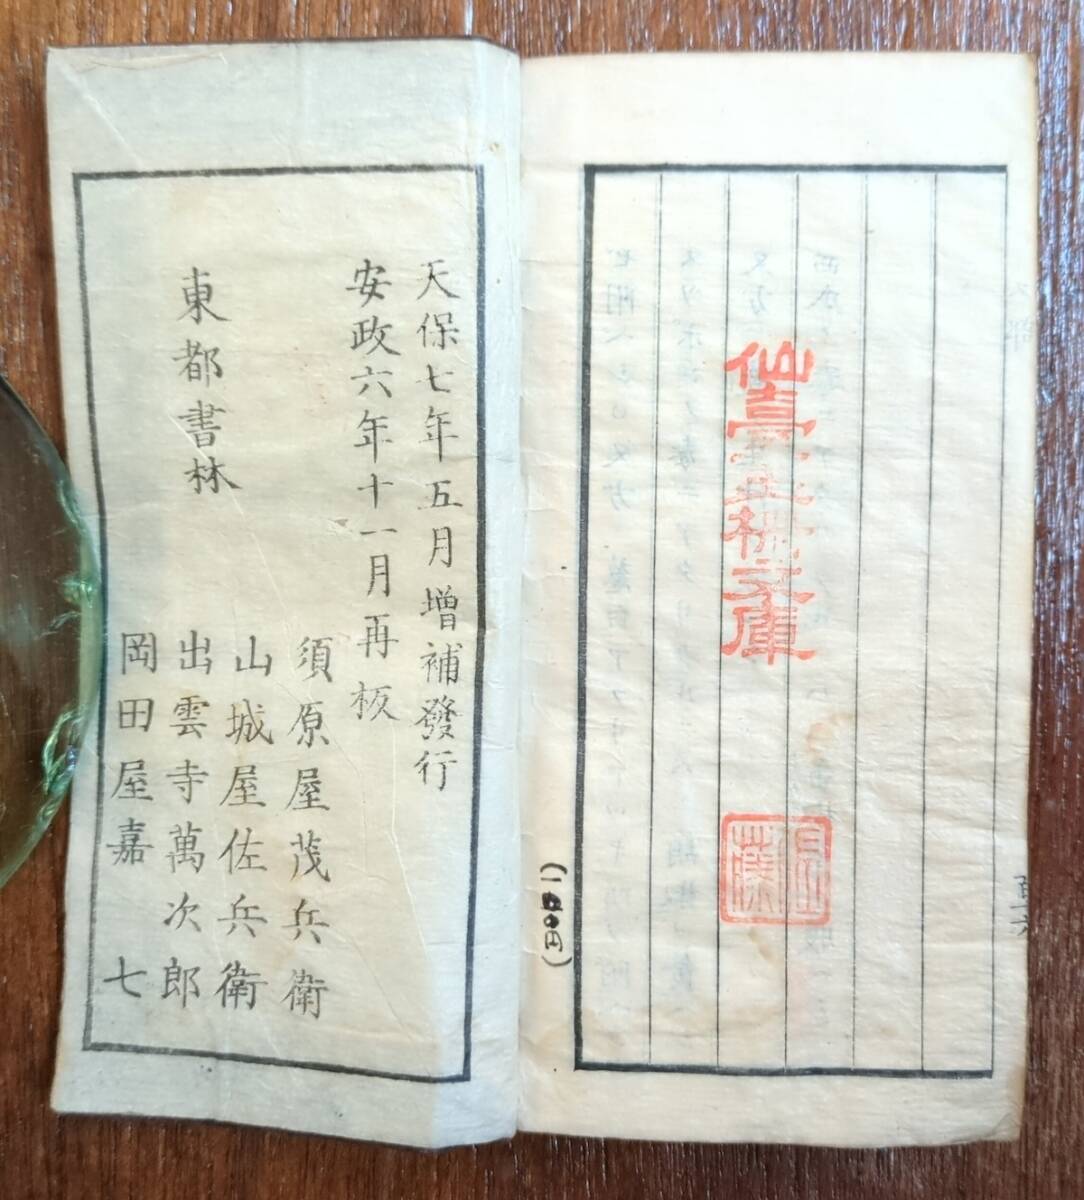 文庫
(一五〇円)
天保七年五月増補發行
安政六年十一月再板
東都書林
須原屋茂兵衛
山城屋佐兵衛
出雲寺萬次郎
岡田屋嘉七